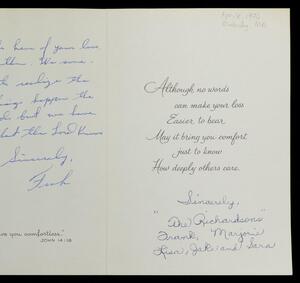 of your love
then. We some-
realize the
things happen the
do but we have
that the Lord knows
Sincerely,
you comfortless."
JOHN 14:18
April 8, 1970
Although no words
can make your loss
Easier to bear
May it bring you comfort
just to know
How deeply others care.
Sincerely,
"The Richardsons"
Frank, Marjorie
Jake and Sara